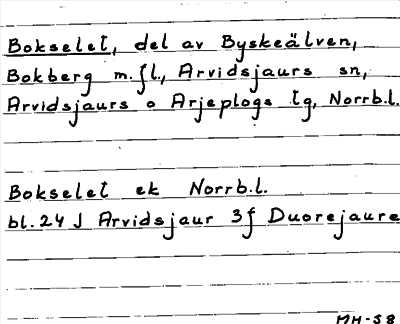 Bokselet, del av Byskeälven,
Bokberg m.fl., Arvidsjaurs sn,
Arvidsjaurs o Arjeplogs tg, Norrb.l.
Bokselet ek Norrb.l.
bl. 24 J Arvidsjaur 3f Duorejaure
MH-58